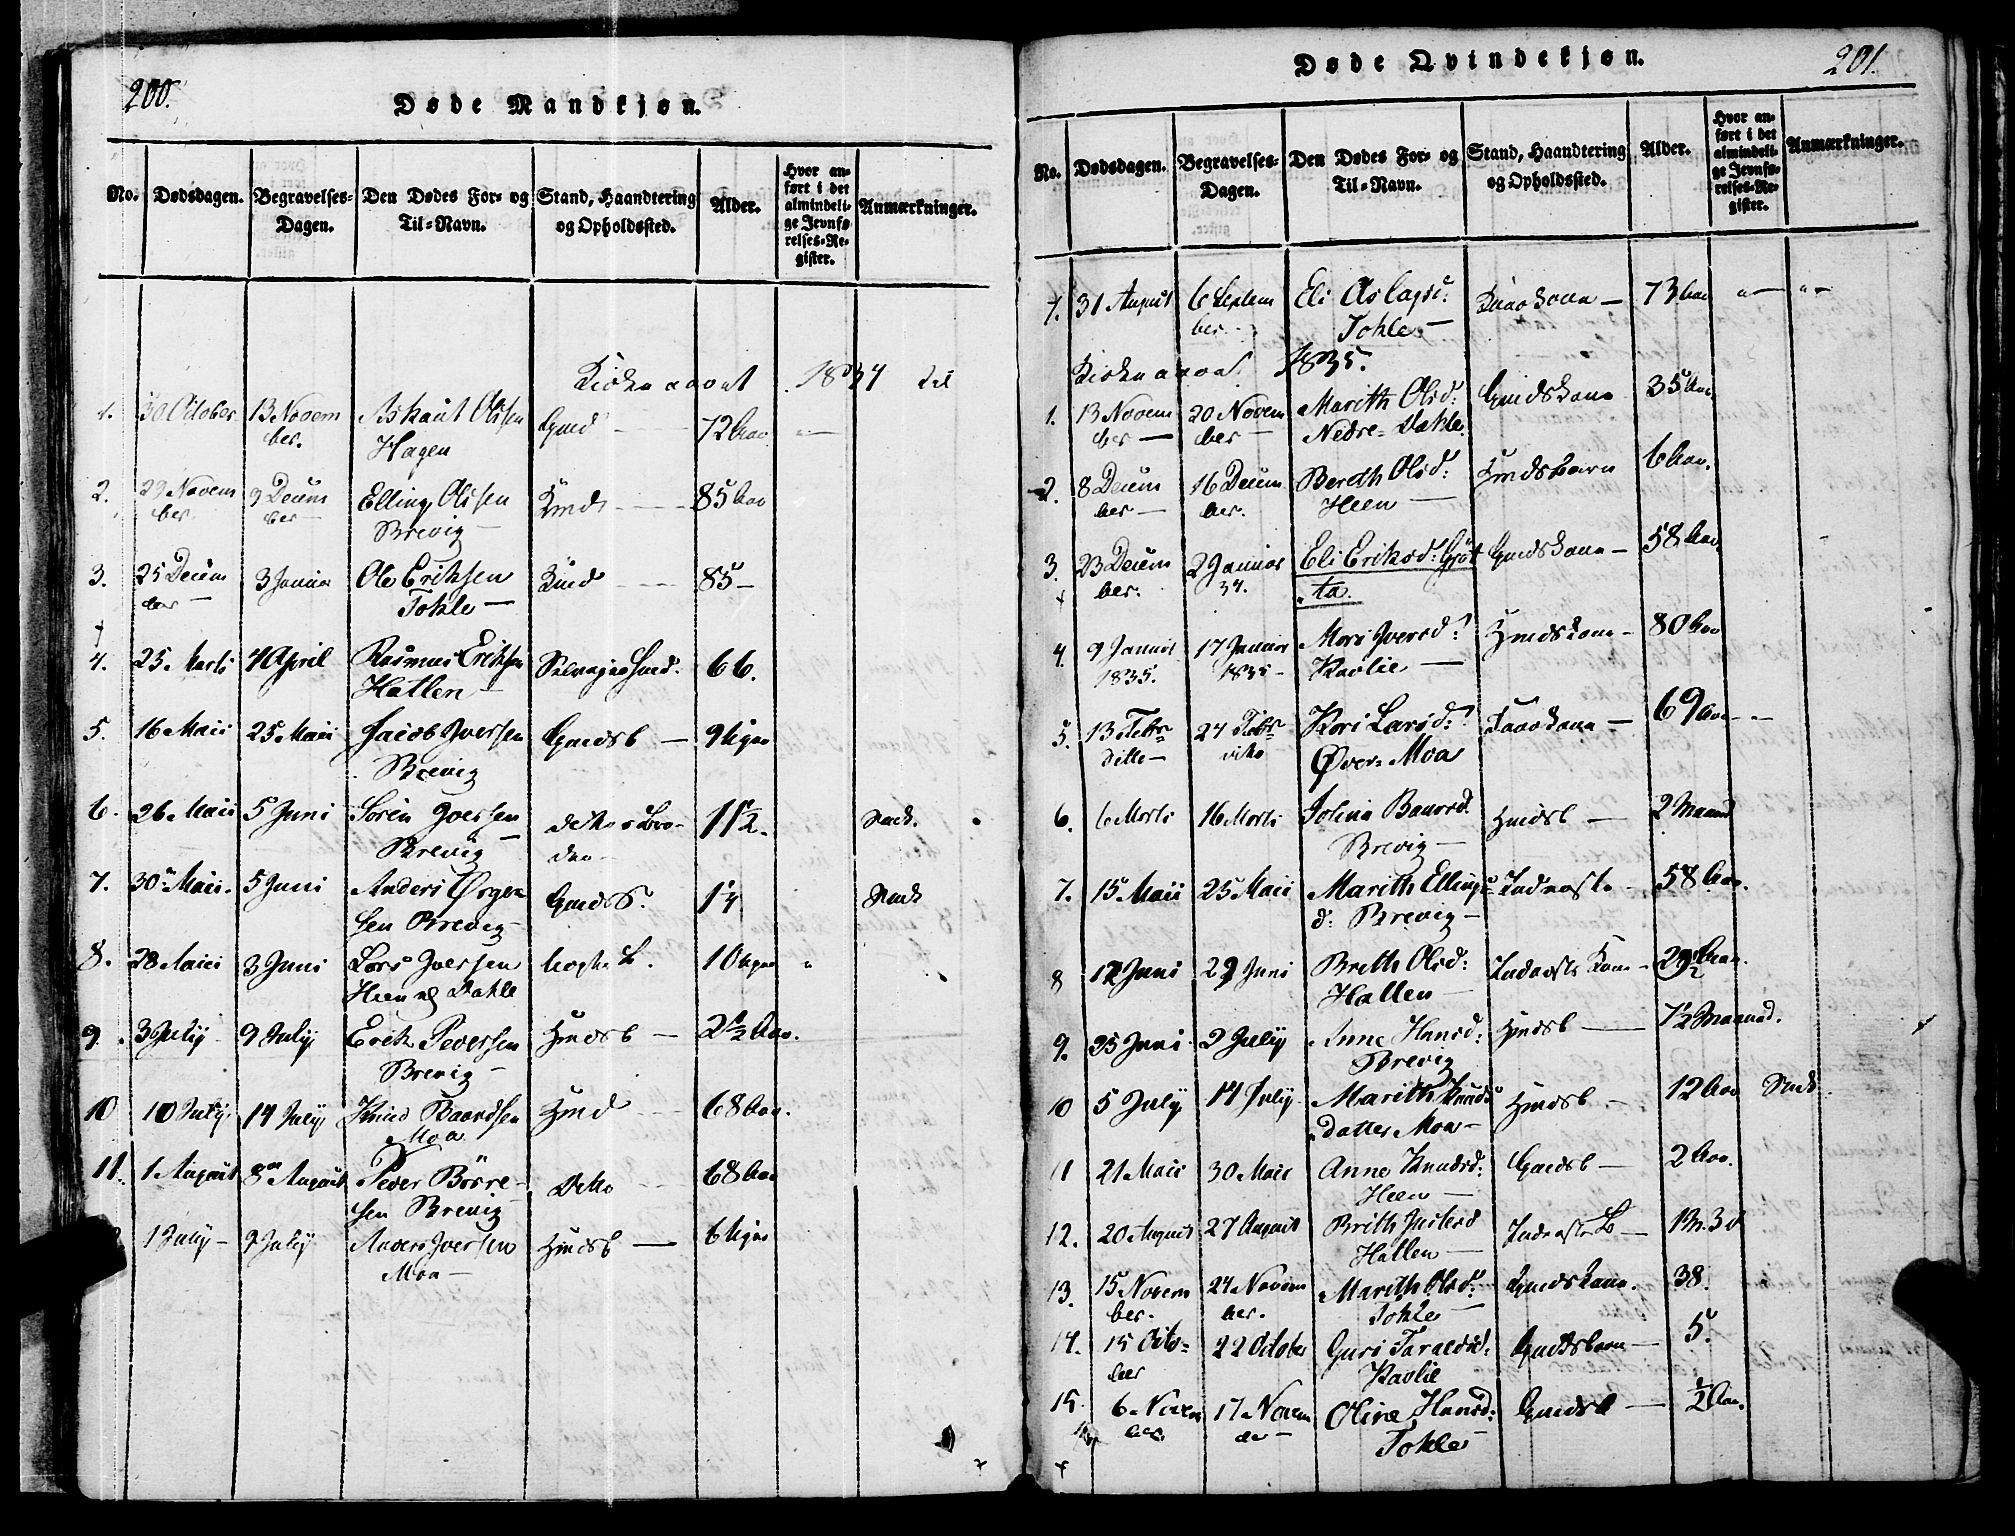 200.
Døde Mandkjøn.
No. Dødsdagen. Begravelses-Dagen. Den Dødes For- og Til-Navn. Stand, Haandtering og Opholdssted. Alder. Hvor anført i det almindelige Jevnførelses-Register. Anmærkninger.
1834 til
1. 30 October 13 November. Askaut Olsen Hagen Gmd 72 Aar
2. 29 November 9 December Elling Olsen Brevig 85 Aar
3. 25 December 3 Januar Ole Eriksen Tokle 85 —
4. 25 Marti 4 April Rasmus Eriksen Hatlen 66.
5. 16 Maii 25 Maii Jacob Iversen Brevig Gmdsb — 9 Uger
6. 26 Maii 5 Juni Søren Iversen Brevig 1 1/2.
7. 30 Maii. 5 Juni Anders Ørgensen Brevig — Gmdss. 1 1/4
8. 28 Maii 3 Juni Lars Iversen Heen og Dahle 10 Uger
9. 3 July 9 July Erik Peversen Brevig — Hmdsb — 2 1/2 Aar.
10 10 July 14 July Knud Baardsen Moa Hmd 68 Aar.
11. 1 August 8 August Peder Børresen Brevig Ditto 68 Aar
1 July — 9 July Anders Iversen Moa — Hmdsb — 6 Uger
201.
Døde Qvindekjøn.
No. Dødsdagen. Begravelses-Dagen. Den Dødes For- og Til-Navn. Stand, Haandtering og Opholdssted. Alder. Hvor anført i det almindelige Jevnførelses-Register. Anmærkninger.
7. 31 August 6 September Eli Aslagsd: Tokle — 73 Aar
1835.
1. 13 November — 20 November — Marith Olsd: Nedre-Dahle. Gmdskone 35 Aar
2. 8 December — 16 December. Bereth Olsd: Heen — 6 Aar.
3. 23 December. 2 Januar Eli Eriksd: Gjøtta. Gmdskone — 58 Aar
4. 9 Januar 1835. 17 Januar 1835 — Mari Iversd: Kavlie — Hmdskone — 80 Aar
5. 13 Febr ditto — 24 Febr Kari Larsd: Øver-Moa 69 Aar —
6. 6 Marti 16 Marti Jolina Baarsd. Brevig — Hmdsb — 2 Maaned
7. 15 Maii 25 Maii Marith Ellingsd: Brevig — Inderste — 58 Aar.
8 12 Juni 29 Juni Brith Olsd: Hallen — Inderste Kone —
9. 25 Juni 2 July Anne Hansd: Brevig Hmdsb — 7 1/2 Maaned.
10 5 July 14 July Marith Knudsdatter Moa — Hmdsb — 12 Aar
11 21 Maii 30 Maii Anne Knudsd: Heen — Gmdsb — 2 Aar.
12. 20 August 27 August Brith Justsd Hatlen — Inderste B — 1 M. 3 d
13. 15 November. 24 November. Marith Olsd: Tokle — Gmdskone. 38.
14. 15 October 22 October Guri Taraldsd: Kavlie Gmdsbarn — 5.
15. 6 November 17 November — Oline Hansd: Tokle — Gmdsb — 1/2 Aar.